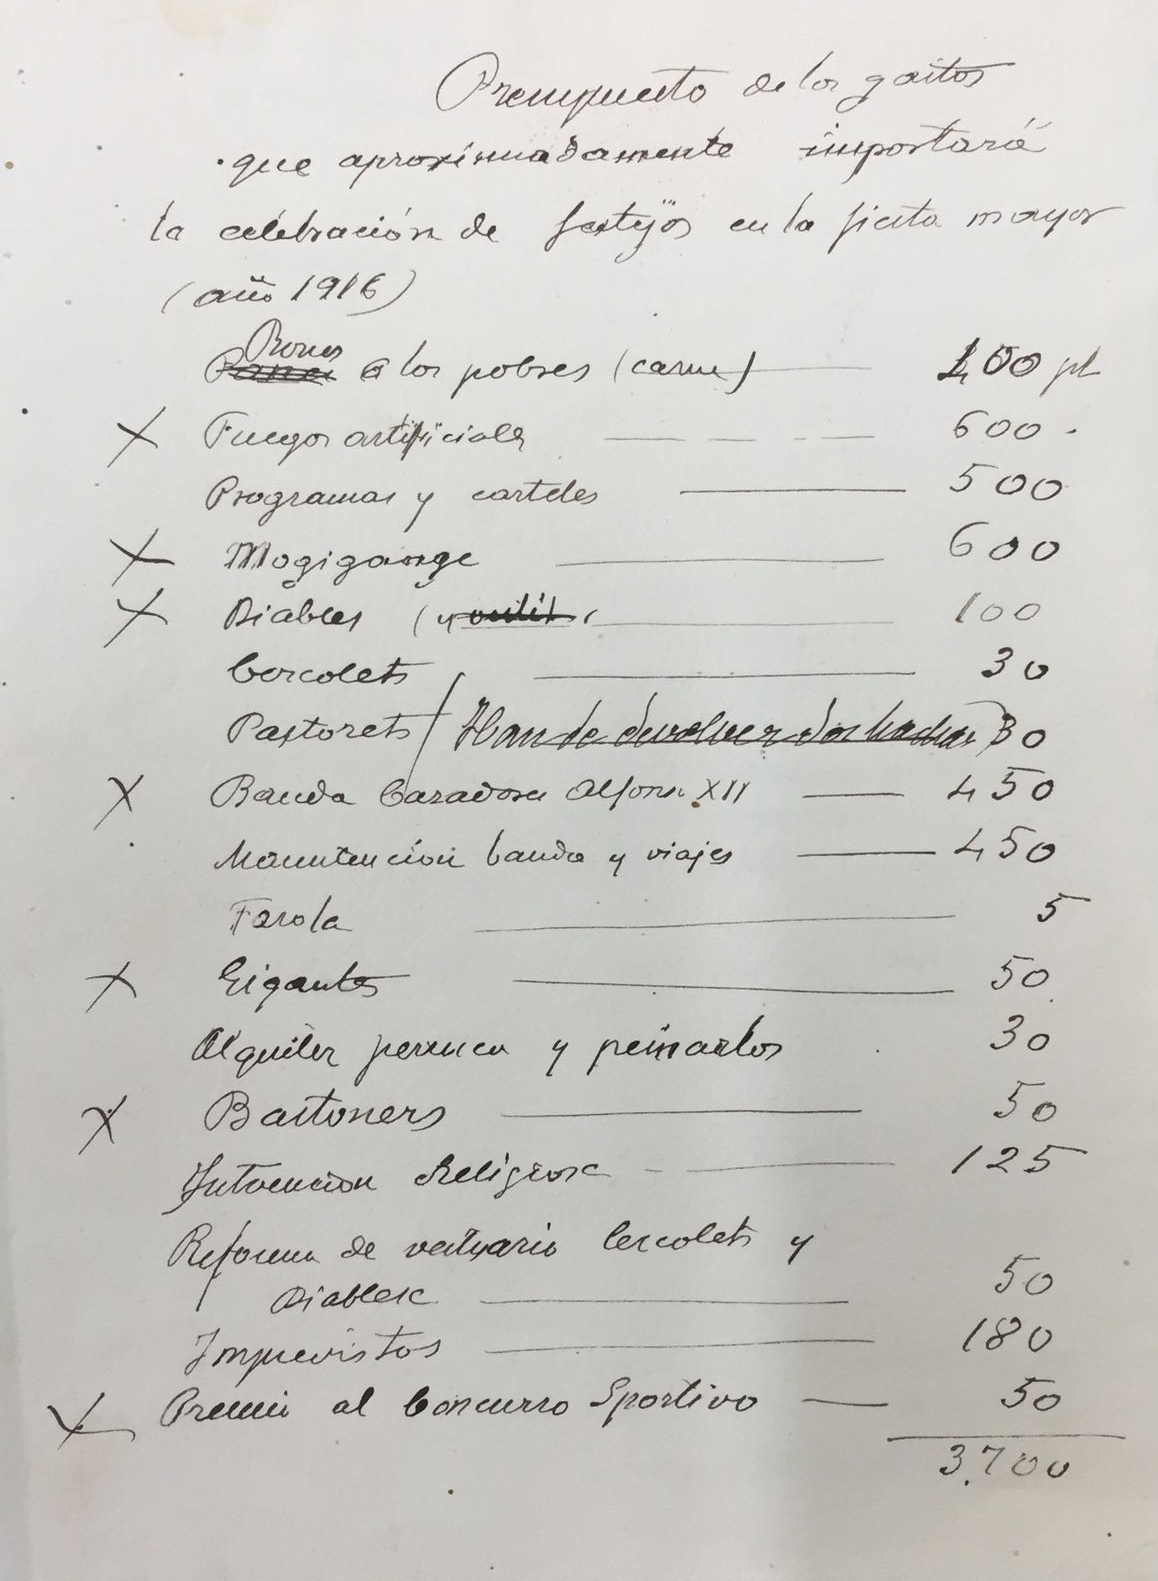 Presupuesto de los gastos
que aproximadamente importará
la celebración de festejos en la fiesta mayor
(año 1916)
Bonos
a los pobres (carne) 400 pt
X Fuegos artificiales 600
Programas y carteles 500
X Mogiganga 600
X Diables (y 100
Cercolets 30
Pastorets (Han de devolver dos hachas) 30
X Banda Cazadores Alfonso XII 450
Manutención banda y viajes 450
Farola 5
X Gigantes 50
Alquiler peruca y peinarlos 30
X Bastoners 50
Intvencion Religiosa 125
Reforma de vestuario Cercolets y
Diablesa 50
Imprevistos 180
X Premio al Concurso Sportivo 50
3.700